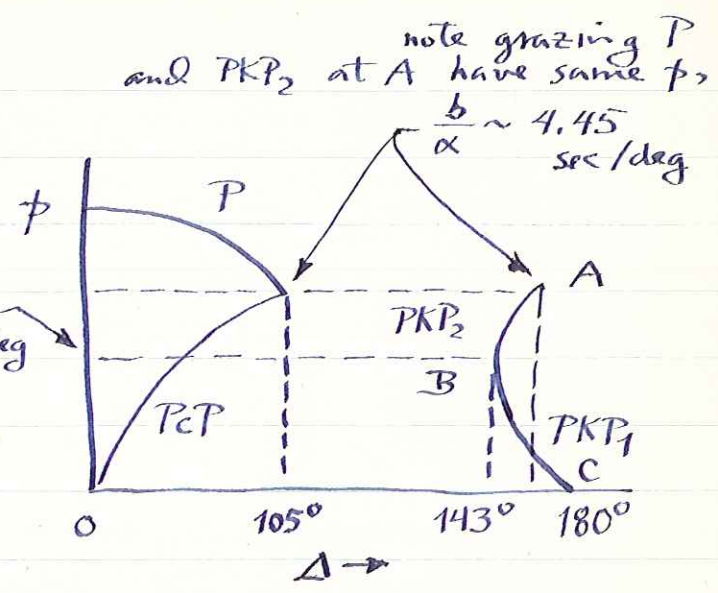 note grazing P
and PKP₂ at A have same p,
b/α ~ 4.45
sec/deg
p
P
A
PKP₂
eg
B
PcP
PKP₁
C
0
105°
143°
180°
Δ →